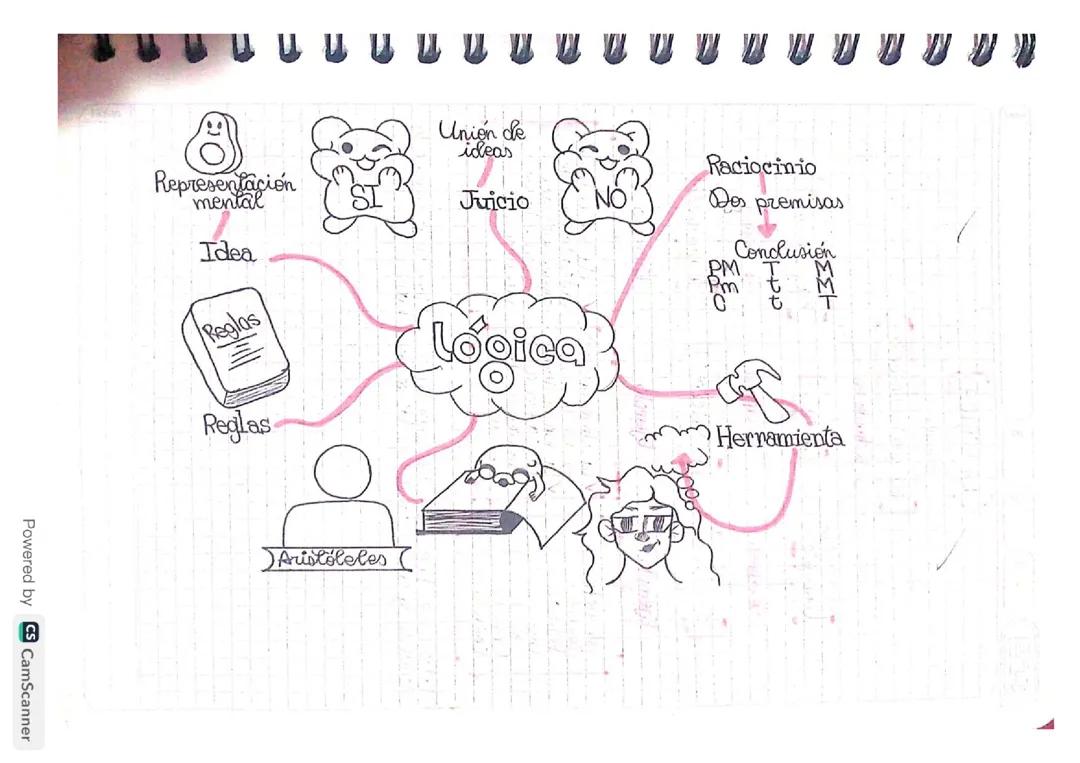 Representación
mental
Idea
SI
Unión de
ideas
Juicio
NO
Raciocinio
Dos premisas
Conclusión
PM T M
Pm t M
C t T
Lógica
Reglas
Reglas
Herramienta
Aristóteles
Powered by CS CamScanner